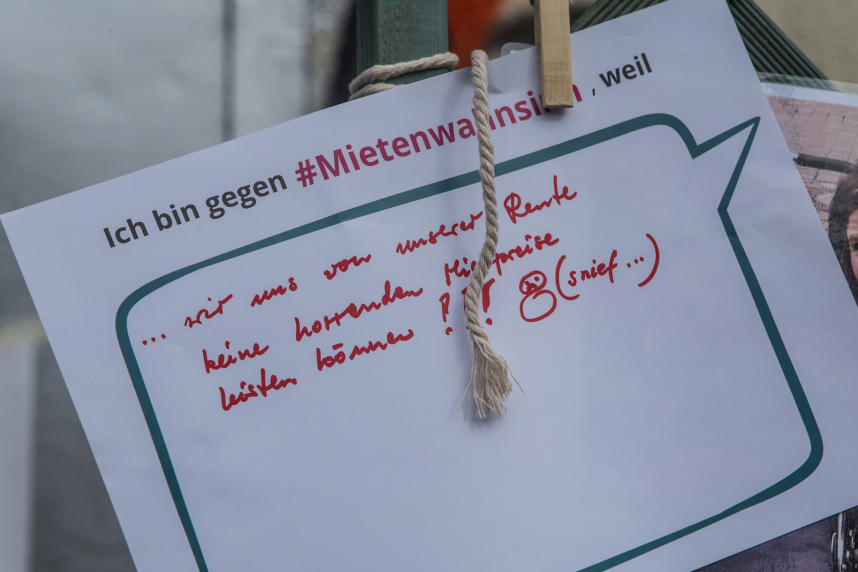 Ich bin gegen #Mietenwahnsinn, weil
... wir uns von unserer Rente
keine horrenden Mietpreise
leisten können !!! (snief...)